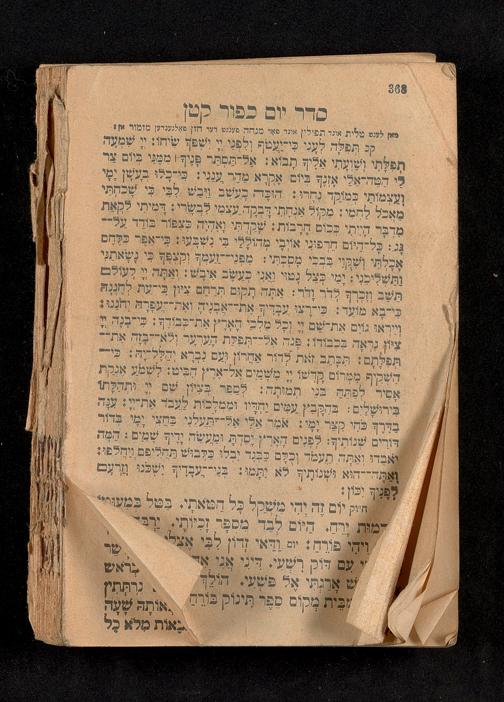 368
סדר יום כפור קטן
מאן לעגט טלית אונד תפילין אונד פאר מנחה פענגט דער חזן פאלגענדען מזמור אן:
קב תפלה לעני כי־יעטף ולפני יי ישפך שיחו: יי שמעה
תפלתי ושועתי אליך תבוא: אל־תסתר פניך ממני ביום צר
לי הטה־אלי אזנך ביום אקרא מהר ענני: כי־כלו בעשן ימי
ועצמותי כמוקד נחרו: הוכה כעשב ויבש לבי כי שכחתי
מאכל לחמי: מקול אנחתי דבקה עצמי לבשרי: דמיתי לקאת
מדבר הייתי ככוס חרבות: שקדתי ואהיה כצפור בודד על־
גג: כל־היום חרפוני אויבי מהוללי בי נשבעו: כי־אפר כלחם
אכלתי ושקוי בבכי מסכתי: מפני־זעמך וקצפך כי נשאתני
ותשליכני: ימי כצל נטוי ואני כעשב איבש: ואתה יי לעולם
תשב וזכרך לדר ודר: אתה תקום תרחם ציון כי־עת לחננה
כי־בא מועד: כי־רצו עבדיך את־אבניה ואת־עפרה יחננו:
וייראו גוים את־שם יי וכל מלכי הארץ את־כבודך: כי־בנה יי
ציון נראה בכבודו: פנה אל־תפלת הערער ולא־בזה את־
תפלתם: תכתב זאת לדור אחרון ועם נברא יהלל־יה: כי־
השקיף ממרום קדשו יי משמים אל־ארץ הביט: לשמע אנקת
אסיר לפתח בני תמותה: לספר בציון שם יי ותהלתו
בירושלים: בהקבץ עמים יחדיו וממלכות לעבד את־יי: ענה
בדרך כחי קצר ימי: אמר אלי אל־תעלני בחצי ימי בדור
דורים שנותיך: לפנים הארץ יסדת ומעשה ידיך שמים: המה
יאבדו ואתה תעמד וכלם כבגד יבלו כלבוש תחליפם ויחלפו:
ואתה־הוא ושנותיך לא יתמו: בני־עבדיך ישכנו וזרעם
לפניך יכון:
יום זה יהי משקל כל חטאתי. בטל במעוטו
ירח. היום לבד מספר זכיותי.
ויהי פורח: יום ודאי זדון לבי
עם דוק רשעי. דיני אני
אל פשעי.
מקום ספר תינוק
שעה
מלא כל